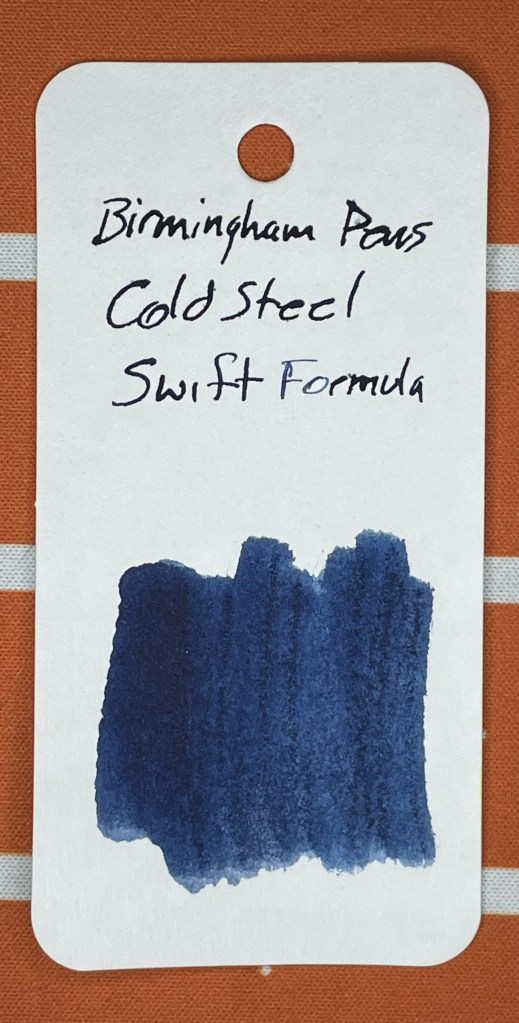 Birmingham Pens
Cold Steel
Swift Formula